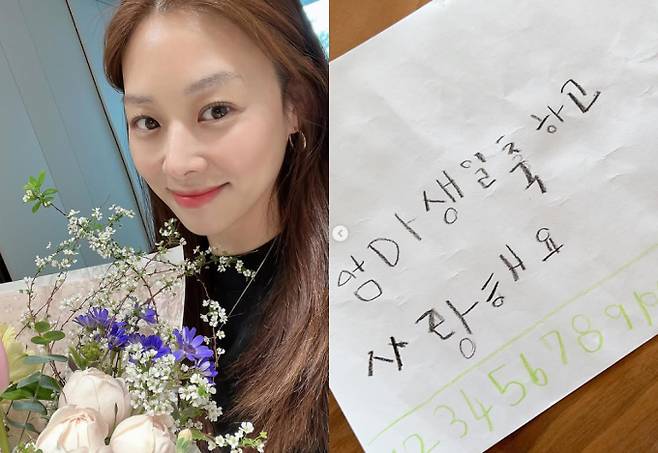 엄마생일축하고
사랑해요
12345678910